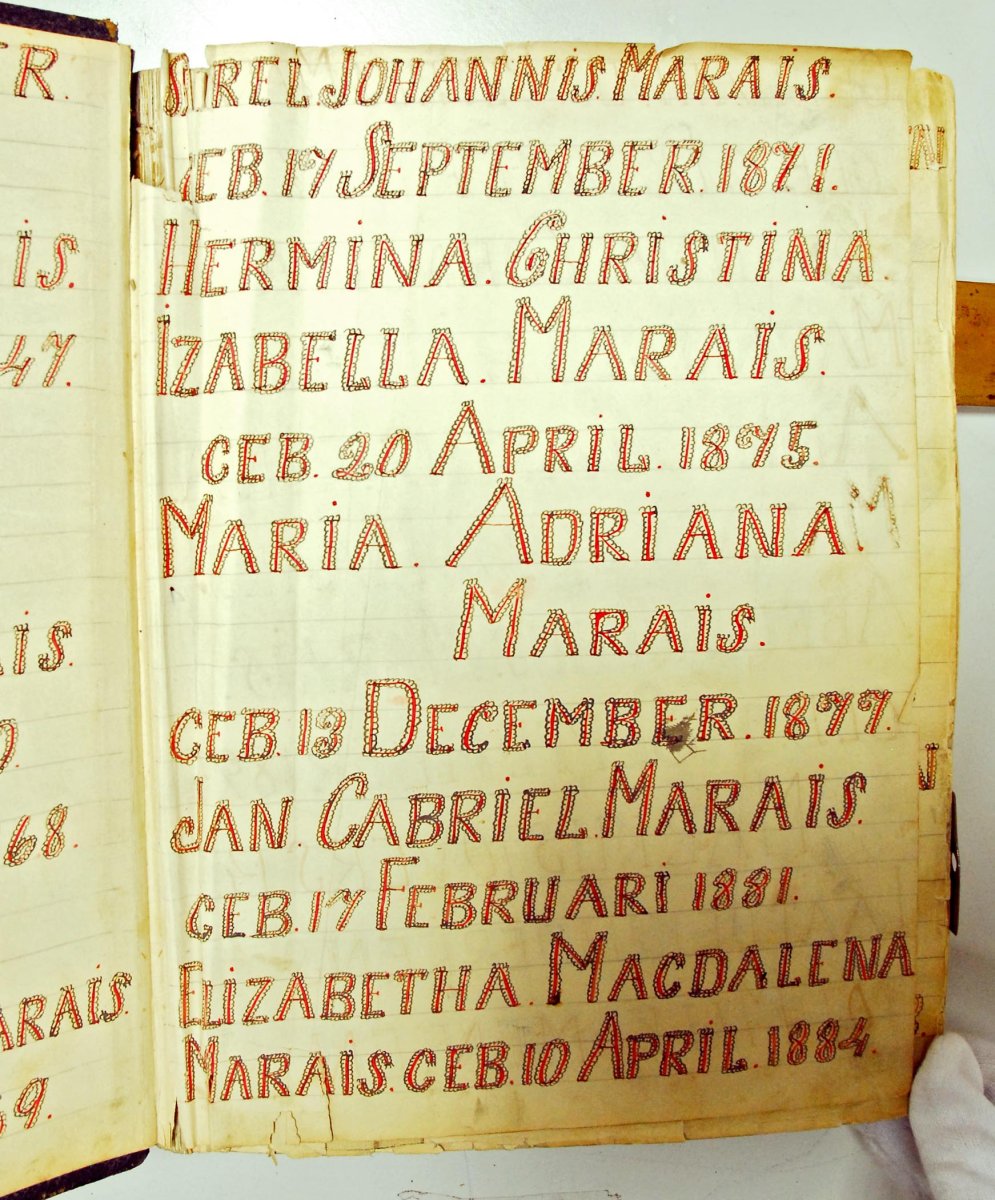 R.
IS.
47.
IS.
68.
ARAIS.
69.
JOHANNIS. MARAIS.
GEB. 17 SEPTEMBER. 1871.
HERMINA. CHRISTINA.
IZABELLA. MARAIS.
GEB. 20 APRIL. 1875.
MARIA. ADRIANA M
MARAIS.
GEB. 13 DECEMBER. 1877.
JAN. GABRIEL. MARAIS.
GEB. 17 FEBRUARI 1881.
ELIZABETHA. MAGDALENA
MARAIS. GEB. 10 APRIL. 1884.